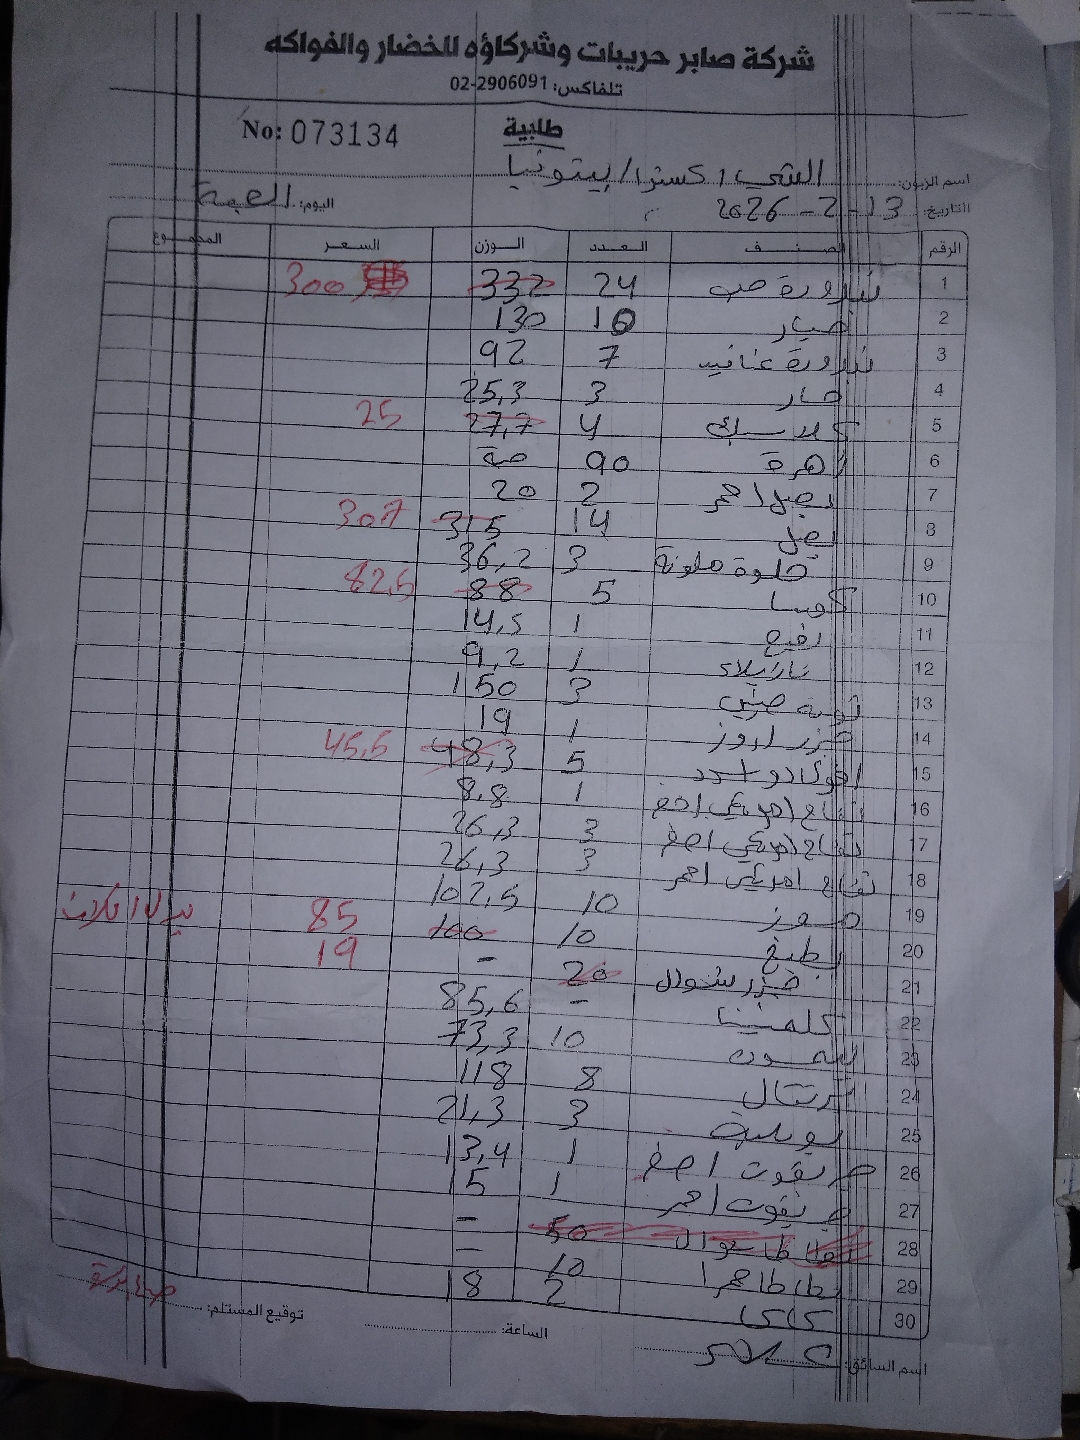 شركة صابر حريبات وشركاؤه للخضار والفواكه
تلفاكس: 02-2906091
طلبية
No: 073134
اسم الزبون: الشني اكسترا / بيتونيا
التاريخ: 13-2-2026 اليوم: الجمعة
الرقم الصنف العدد الوزن السعر المجموع
1 بندورة حب 24 332 300
2 خيار 10 130
3 بندورة عناقيد 7 92
4 حار 3 25,3
5 كلاسيك 4 27,7 25
6 زهرة 90 حبة
7 بصل احمر 2 20
8 بصل 14 315 307
9 حلوة ملونة 3 36,2
10 كوسا 5 88 82,5
11 1 14,5
12 1 9,2
13 صيني 3 150
14 جزر 1 19
15 افوكادو اسود 5 48,3 45,5
16 تفاح امريكي اخضر 1 8,8
17 تفاح امريكي اصفر 3 26,3
18 تفاح امريكي احمر 3 26,3
19 موز 10 102,5
20 بطيخ 10 100 85
21 جزر شوال 20 - 19
22 كلمنتينا - 85,6
23 ليمون 10 73,3
24 برتقال 8 118
25 بوملية 3 21,3
26 جريفوت اصفر 1 13,4
27 جريفوت احمر 1 15
28 بطاطا شوال 50 -
29 بطاطا حمرا 10 -
30 كاكا 2 18
اسم السائق: الساعة: توقيع المستلم: